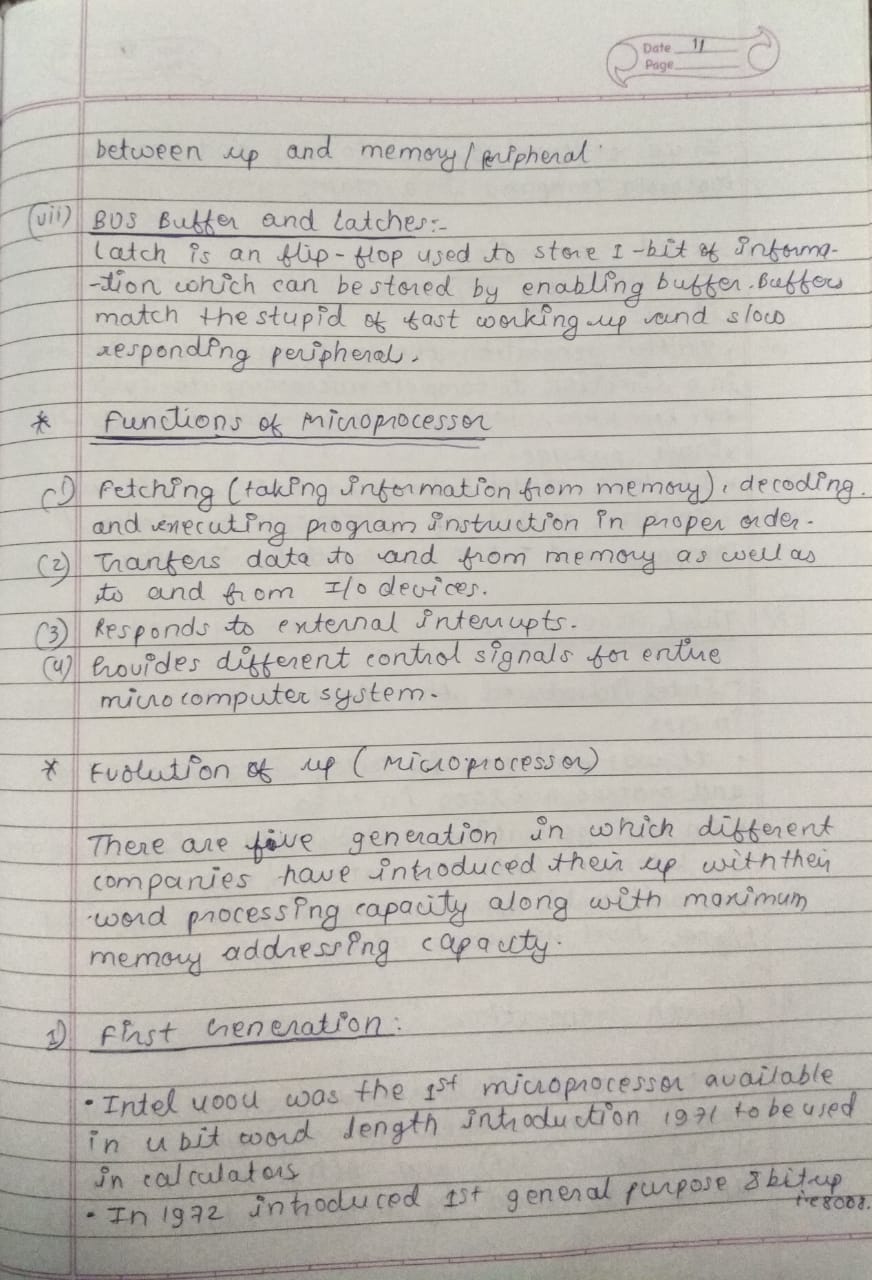 Date 11
Page
between up and memory/peripheral.
(vii) BUS Buffer and latches:-
Latch is an flip-flop used to store 1-bit of informa-
-tion which can be stored by enabling buffer. Buffers
match the stupid of fast working up and slow
responding peripheral.
* Functions of Microprocessor
(1) Fetching (taking information from memory), decoding
and executing program instruction in proper order.
(2) Tranfers data to and from memory as well as
to and from I/O devices.
(3) Responds to external interrupts.
(4) Provides different control signals for entire
microcomputer system.
* Evolution of up (Microprocessor)
There are five generation in which different
companies have introduced their up with their
word processing capacity along with maximum
memory addressing capacity.
1) First Generation:
• Intel 4004 was the 1st microprocessor available
in 4 bit word length introduction 1971 to be used
in calculators
• In 1972 introduced 1st general purpose 8 bit up
i.e 8008.